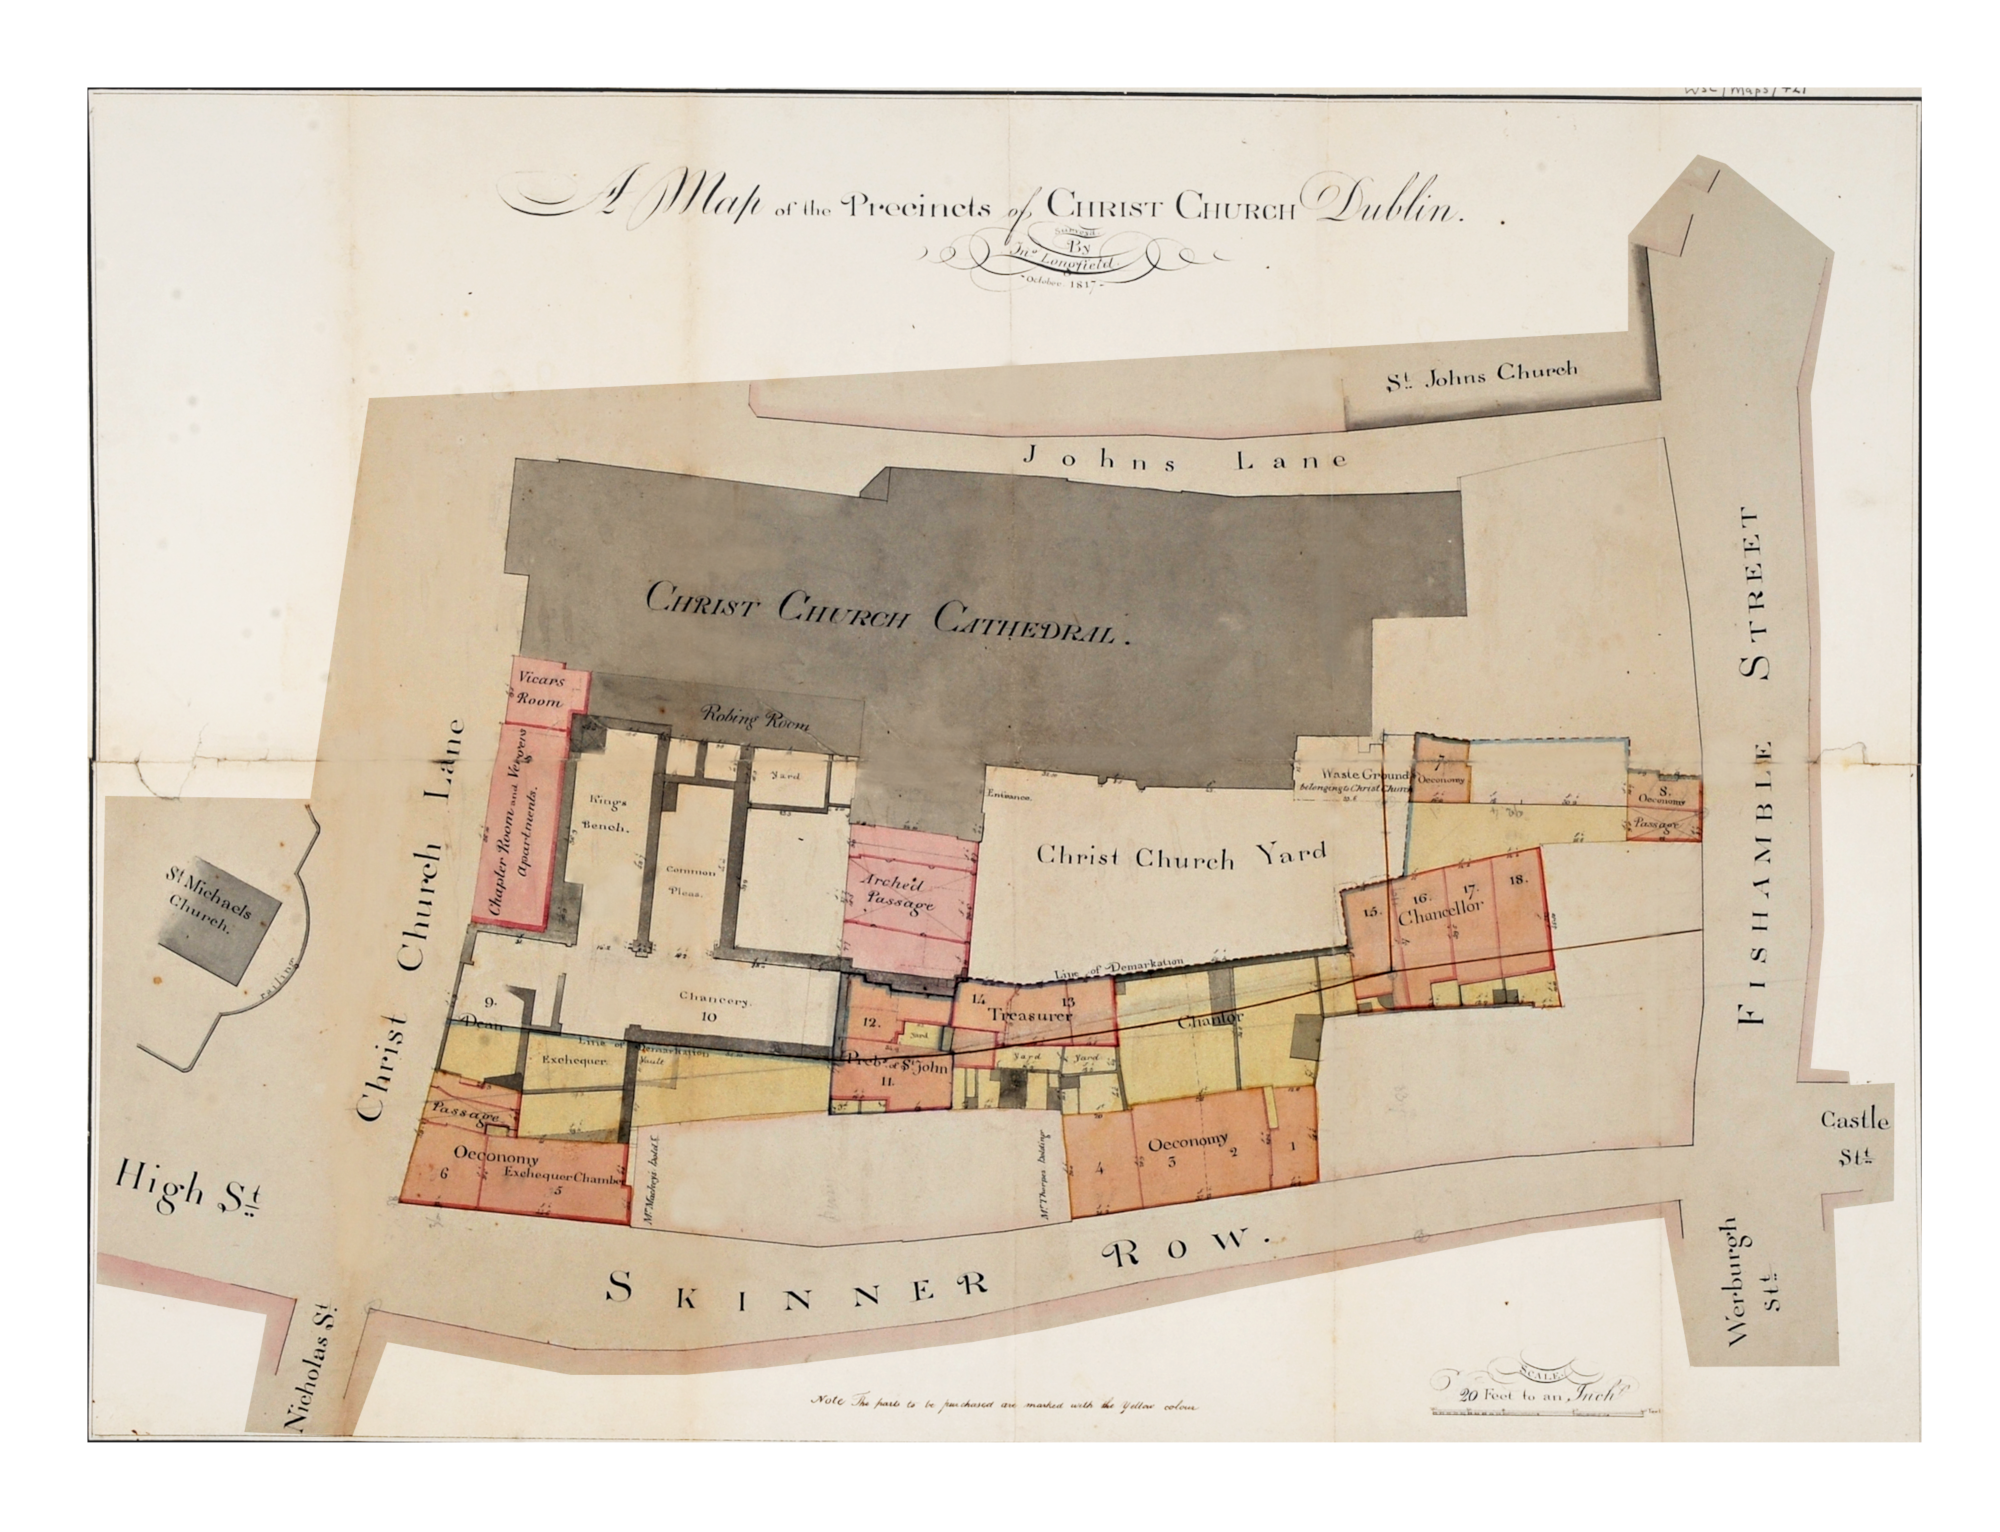 WSC/Maps/421
A Map of the Precincts of CHRIST CHURCH Dublin.
Surveyed
By
Jno. Longfield.
October 1817
St. Johns Church
Johns Lane
CHRIST CHURCH CATHEDRAL.
Vicars
Room
Robing Room
Chapter Room and Vergers
Apartments.
Kings
Bench.
Common
Pleas.
Yard
Entrance.
Waste Ground
belonging to Christ Church
7
Oeconomy
8.
Oeconomy
Passage
Christ Church Yard
Arched
Passage
15.
16.
17.
18.
Chancellor
Line of Demarkation
St. Michaels
Church.
railing
Christ Church Lane
FISHAMBLE STREET
9.
Dean
Chancery.
10
12.
Yard
14
13
Treasurer
Chantor
Exchequer
Line of Demarkation
Vault
Preb. of St. John
11.
Yard
Yard
Passage
Oeconomy
6
Exchequer Chamber
5
Oeconomy
4
3
2
1
High St.
Castle
St.
SKINNER ROW.
Nicholas St.
Werburgh
St.
Note The parts to be purchased are marked with the Yellow colour
SCALE
20 Feet to an Inch